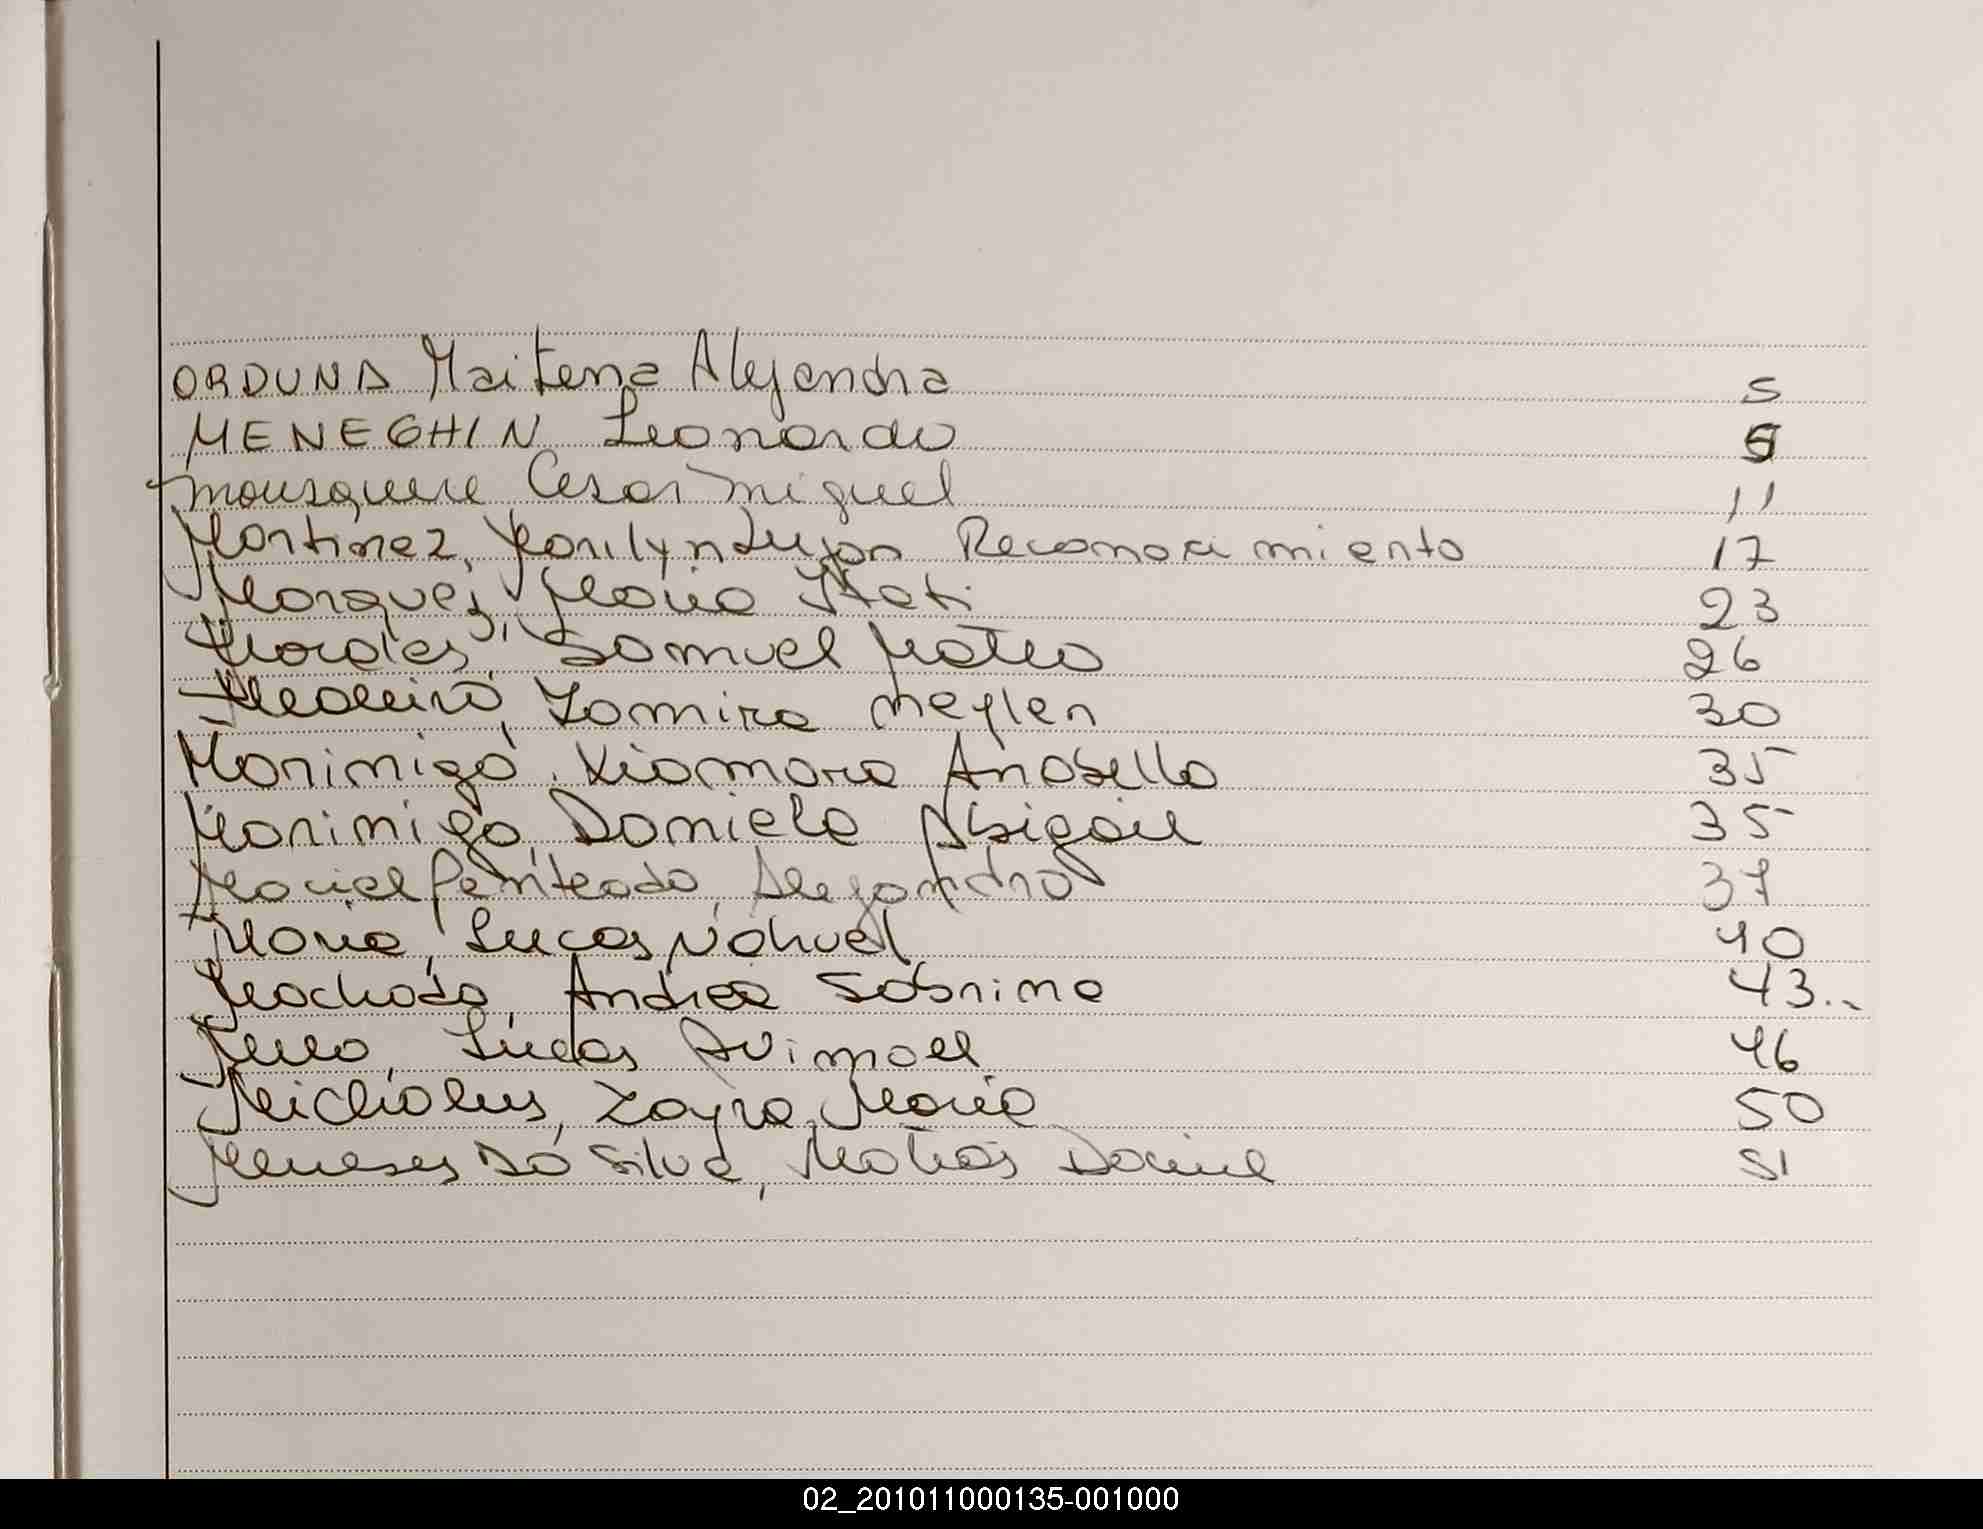 ORDUNA Maitena Alejandra 5
MENEGHIN Leonardo 6
Mousquere Cesar Miguel 11
Martinez, Marilyn Lujan Reconocimiento 17
Marquez, Maria Itati 23
Morales, Samuel Mateo 26
Medeiro, Zamira Meylen 30
Morinigo, Xiomara Anabella 35
Morinigo, Daniela Abigail 35
Maciel Penteado, Alejandro 37
Maria, Lucas Nahuel 40
Machado, Andrea Sabrina 43..
Mello, Lucas Avimael 46
Michalus, Zayra Maria 50
Meneses Da Silva, Matias Daniel 51
02_201011000135-001000